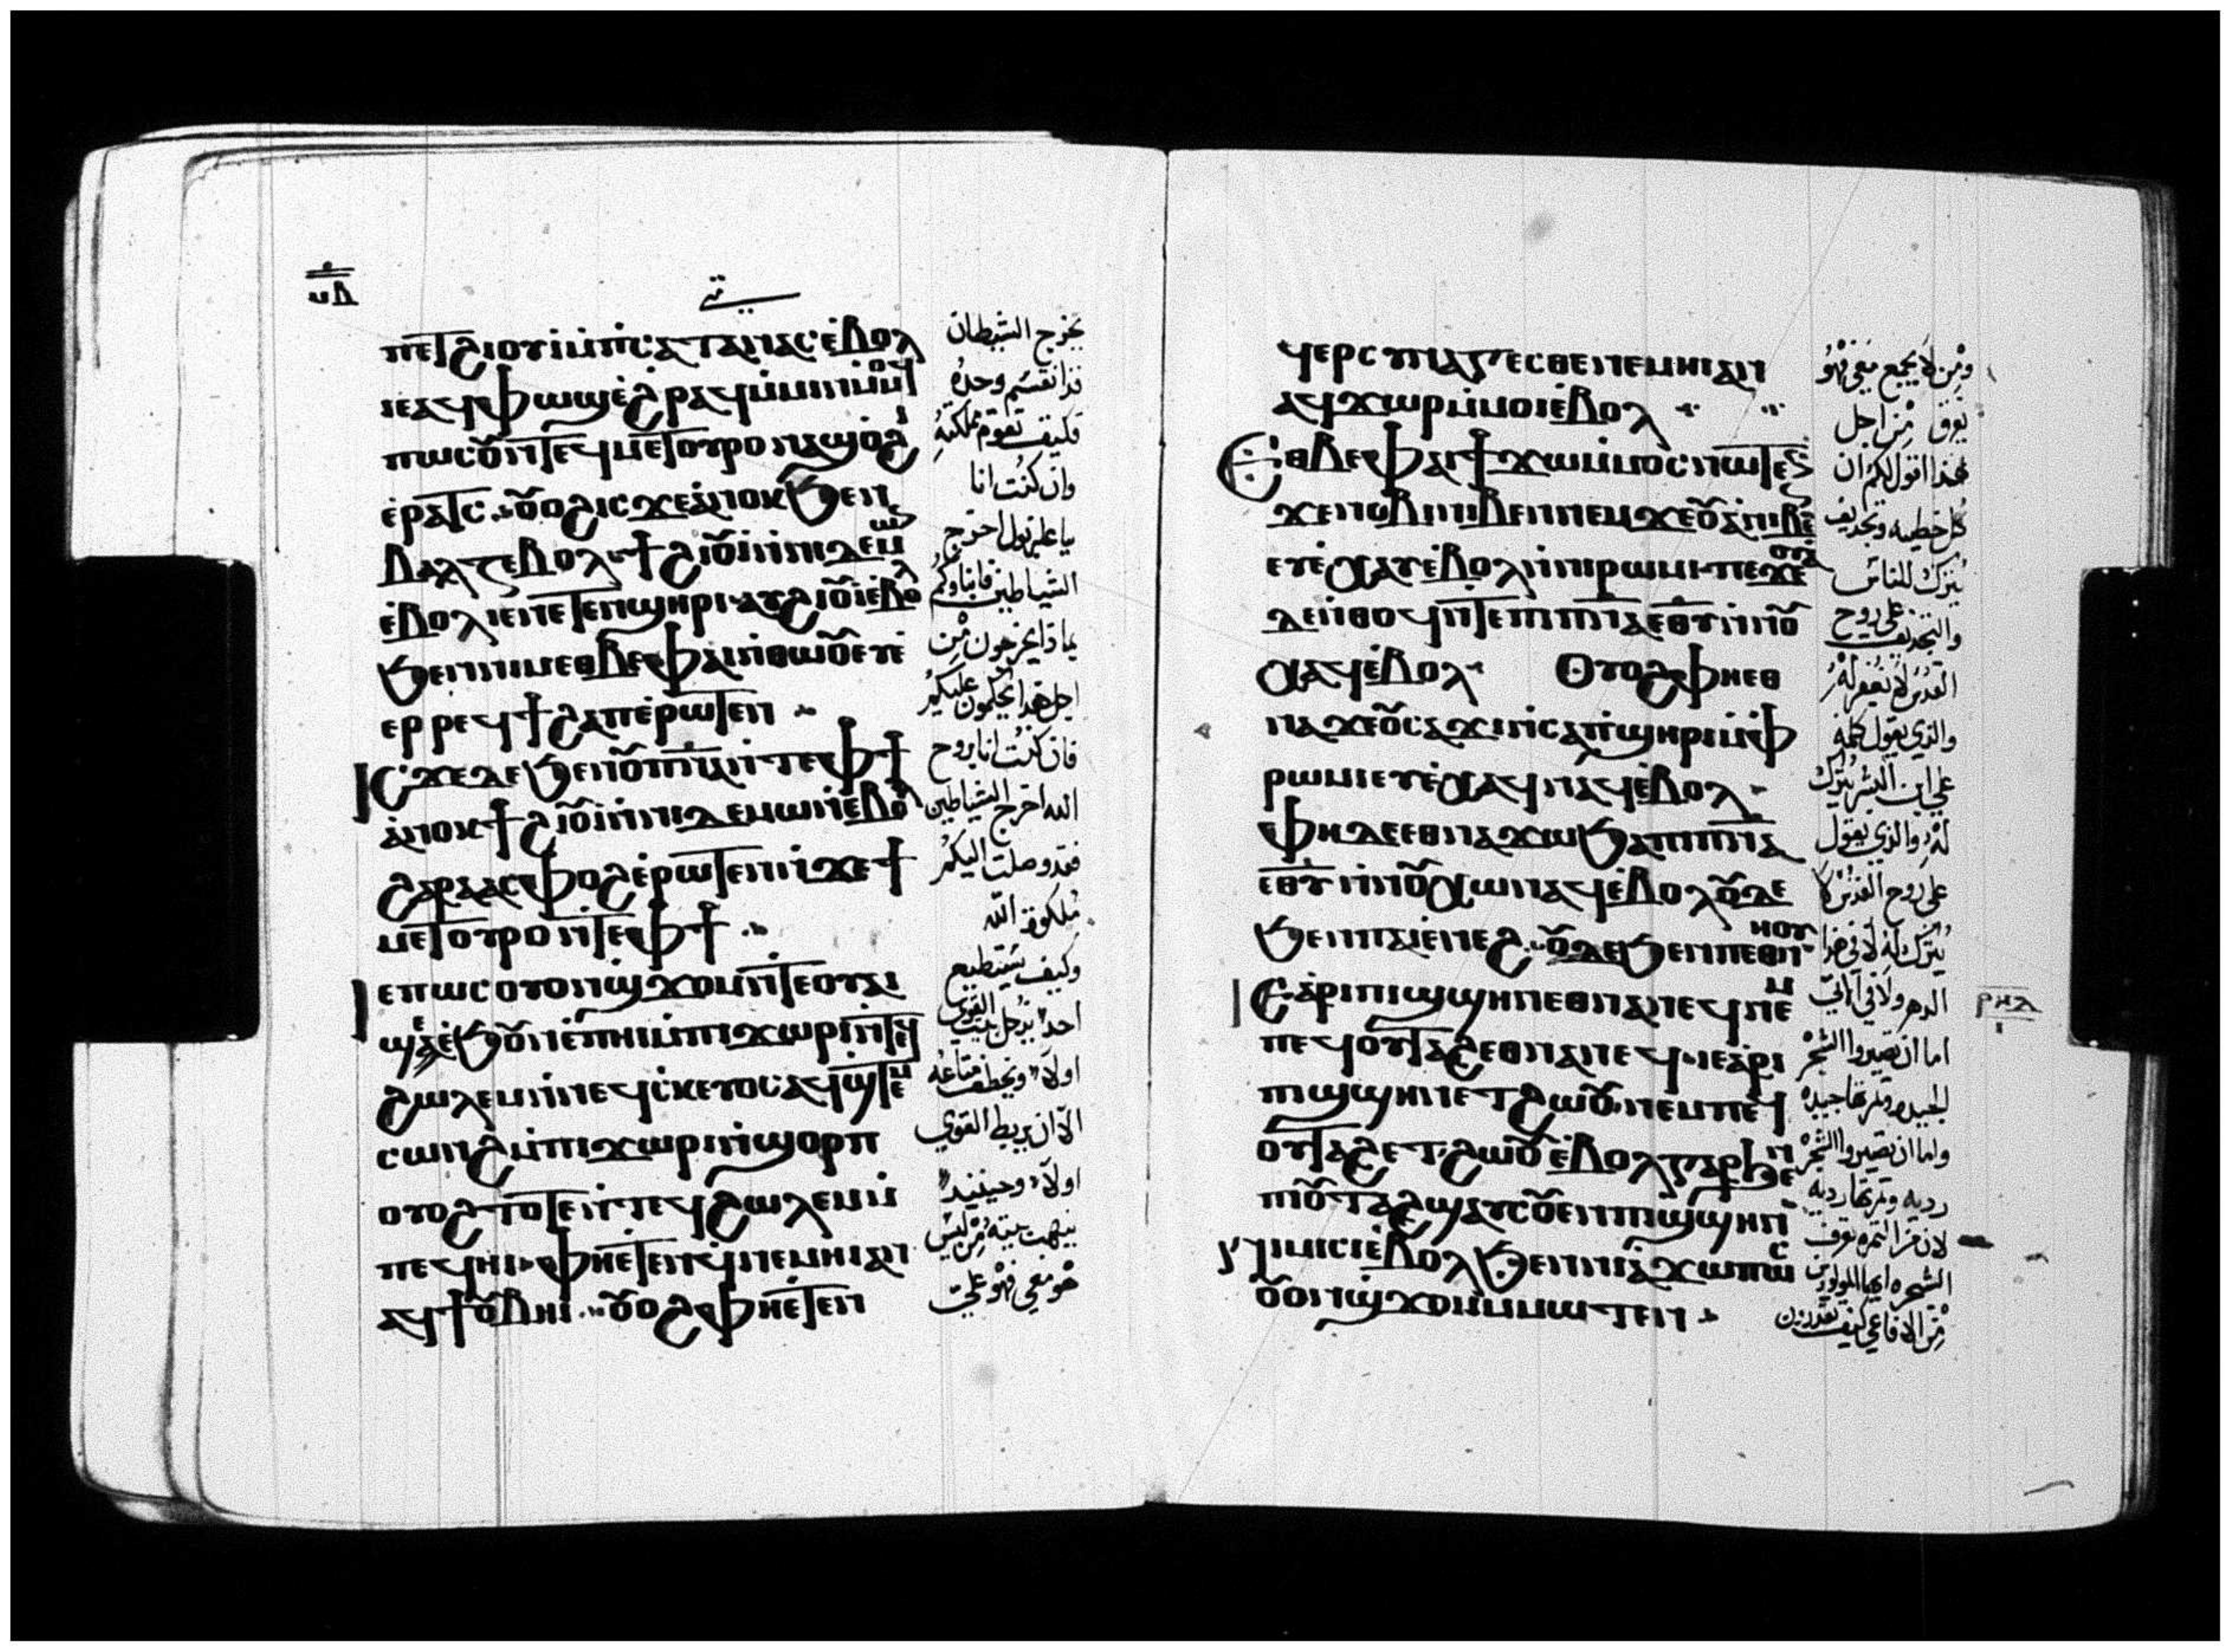 ⲡⲉⲧϩⲓⲟⲩⲓ ⲙⲡⲥⲁⲧⲁⲛⲁⲥ ⲉⲃⲟⲗ
ⲓⲉ ⲁϥⲫⲱϣ ⲉϩⲣⲁϥ ⲙⲙⲓⲛ ⲙⲙⲟϥ
ⲡⲱⲥ ⲟⲩⲛ ⲧⲉϥⲙⲉⲧⲟⲩⲣⲟ ⲛⲁϣⲟϩⲓ
ⲉⲣⲁⲧⲥ ⲟⲩⲟϩ ⲓⲥϫⲉ ⲁⲛⲟⲕ ϧⲉⲛ
ⲃⲉⲗⲍⲉⲃⲟⲩⲗ ϯϩⲓⲟⲩⲓ ⲛⲛⲓⲇⲉⲙⲱⲛ
ⲉⲃⲟⲗ ⲓⲉ ⲛⲉⲧⲉⲛϣⲏⲣⲓ ⲁⲩϩⲓⲟⲩⲓ ⲉⲃⲟⲗ
ϧⲉⲛ ⲛⲓⲙ ⲉⲑⲃⲉ ⲫⲁⲓ ⲛⲑⲱⲟⲩ ⲉⲩⲉ
ⲉⲣⲣⲉϥϯϩⲁⲡ ⲉⲣⲱⲧⲉⲛ
ⲓⲥϫⲉ ⲇⲉ ϧⲉⲛ ⲟⲩⲡⲛⲁ ⲛⲧⲉ ⲫϯ
ⲁⲛⲟⲕ ϯϩⲓⲟⲩⲓ ⲛⲛⲓⲇⲉⲙⲱⲛ ⲉⲃⲟⲗ
ϩⲁⲣⲁ ⲁⲥⲫⲟϩ ⲉⲣⲱⲧⲉⲛ ⲛϫⲉ ϯ
ⲙⲉⲧⲟⲩⲣⲟ ⲛⲧⲉ ⲫϯ
ⲓⲉ ⲡⲱⲥ ⲟⲩⲟⲛ ϣϫⲟⲙ ⲛⲧⲉ ⲟⲩⲁⲓ
ϣⲉ ⲉϧⲟⲩⲛ ⲉⲡⲏⲓ ⲙⲡⲓϫⲱⲣⲓ ⲛⲧⲉϥ
ϩⲱⲗⲉⲙ ⲛⲛⲉϥⲥⲕⲉⲩⲟⲥ ⲁϥϣⲧⲉⲙ
ⲥⲱⲛϩ ⲙⲡⲓϫⲱⲣⲓ ⲛϣⲟⲣⲡ
ⲟⲩⲟϩ ⲧⲟⲧⲉ ⲛⲧⲉϥϩⲱⲗⲉⲙ ⲙ
ⲡⲉϥⲏⲓ ⲫⲏⲉⲧⲉⲛϥⲛⲉⲙⲏⲓ ⲁⲛ
ⲁϥϯ ⲟⲩⲃⲏⲓ ⲟⲩⲟϩ ⲫⲏⲉⲧⲉⲛ
يخرج الشيطان
فذا نقسم وحده
فكيف تقوم مملكته
وان كنت انا
بباعلزبول اخرج
الشياطين فابناوكم
بماذا يخرجون من
اجل هذا يحكمون عليكم
فان كنت انا بروح
الله اخرج الشياطين
فقد وصلت اليكم
ملكوة الله
وكيف يستطيع
احد يدخل بيت القوي
اولا ويخطف متاعه
الا ان يربط القوي
اولا وحينيد
ينهب بيته من ليس
هو معي فهو علي
ϥⲉⲣⲥⲩⲛⲁⲍⲉⲥⲑⲉ ⲛⲉⲙⲏⲓ ⲁⲛ
ⲁϥϫⲱⲣ ⲙⲙⲟⲓ ⲉⲃⲟⲗ
Ⲉⲑⲃⲉ ⲫⲁⲓ ϯϫⲱ ⲙⲙⲟⲥ ⲛⲱⲧⲉⲛ
ϫⲉ ⲛⲟⲃⲓ ⲛⲓⲃⲉⲛ ⲛⲉⲙ ϫⲉⲟⲩⲁ ⲛⲓⲃⲉⲛ
ⲉⲩⲉⲭⲁⲩ ⲉⲃⲟⲗ ⲛⲛⲓⲣⲱⲙⲓ ⲡⲓϫⲉⲟⲩⲁ
ⲇⲉ ⲛⲑⲟϥ ⲛⲧⲉ ⲡⲓⲡⲛⲁ ⲉⲑⲩ ⲛⲛⲟⲩ
ⲭⲁϥ ⲉⲃⲟⲗ Ⲟⲩⲟϩ ⲫⲏⲉⲑ
ⲛⲁϫⲉ ⲟⲩⲥⲁϫⲓ ⲛⲥⲁ ⲡϣⲏⲣⲓ ⲙⲫ
ⲣⲱⲙⲓ ⲉⲩⲉⲭⲁϥ ⲛⲁϥ ⲉⲃⲟⲗ
ⲫⲏ ⲇⲉ ⲉⲑⲛⲁϫⲱ ϧⲁ ⲡⲓⲡⲛⲁ
ⲉⲑⲩ ⲛⲛⲟⲩⲭⲱ ⲛⲁϥ ⲉⲃⲟⲗ ⲟⲩⲇⲉ
ϧⲉⲛ ⲡⲁⲓⲉⲛⲉϩ ⲟⲩⲇⲉ ϧⲉⲛ ⲡⲉⲑⲛⲏⲟⲩ
ⲓⲉ ⲁⲣⲓ ⲡⲓϣϣⲏⲛ ⲉⲑⲛⲁⲛⲉϥ ⲛⲉⲙ
ⲡⲉϥⲟⲩⲧⲁϩ ⲉⲑⲛⲁⲛⲉϥ ⲓⲉ ⲁⲣⲓ
ⲡⲓϣϣⲏⲛ ⲉⲧϩⲱⲟⲩ ⲛⲉⲙ ⲡⲉϥ
ⲟⲩⲧⲁϩ ⲉⲧϩⲱⲟⲩ ⲉⲃⲟⲗ ⲅⲁⲣ ϧⲉⲛ
ⲡⲓⲟⲩⲧⲁϩ ϣⲁⲩⲥⲟⲩⲉⲛ ⲡⲓϣϣⲏⲛ
ⲛⲓⲙⲓⲥⲓ ⲉⲃⲟⲗ ϧⲉⲛ ⲛⲓⲁϫⲱ ⲡⲱⲥ
ⲟⲩⲟⲛ ϣϫⲟⲙ ⲙⲙⲱⲧⲉⲛ
ومن لا يجمع معي فهو
يفرق من اجل
هذا اقول لكم ان
كل خطيه وتجديف
يترك للناس
والتجديف على روح
القدس لا يغفر له
والذي يقول كلمه
على ابن البشر يترك
له والذي يقول
على روح القدس لا
يترك له لا في هذا
الدهر ولا في الاتي
اما ان تصيروا الشجره
الجيده وثمرتها جيده
واما ان تصيروا الشجره
رديه وثمرتها رديه
لان من الثمره تعرف
الشجره ايها المولودين
من الافاعي كيف تقدرون